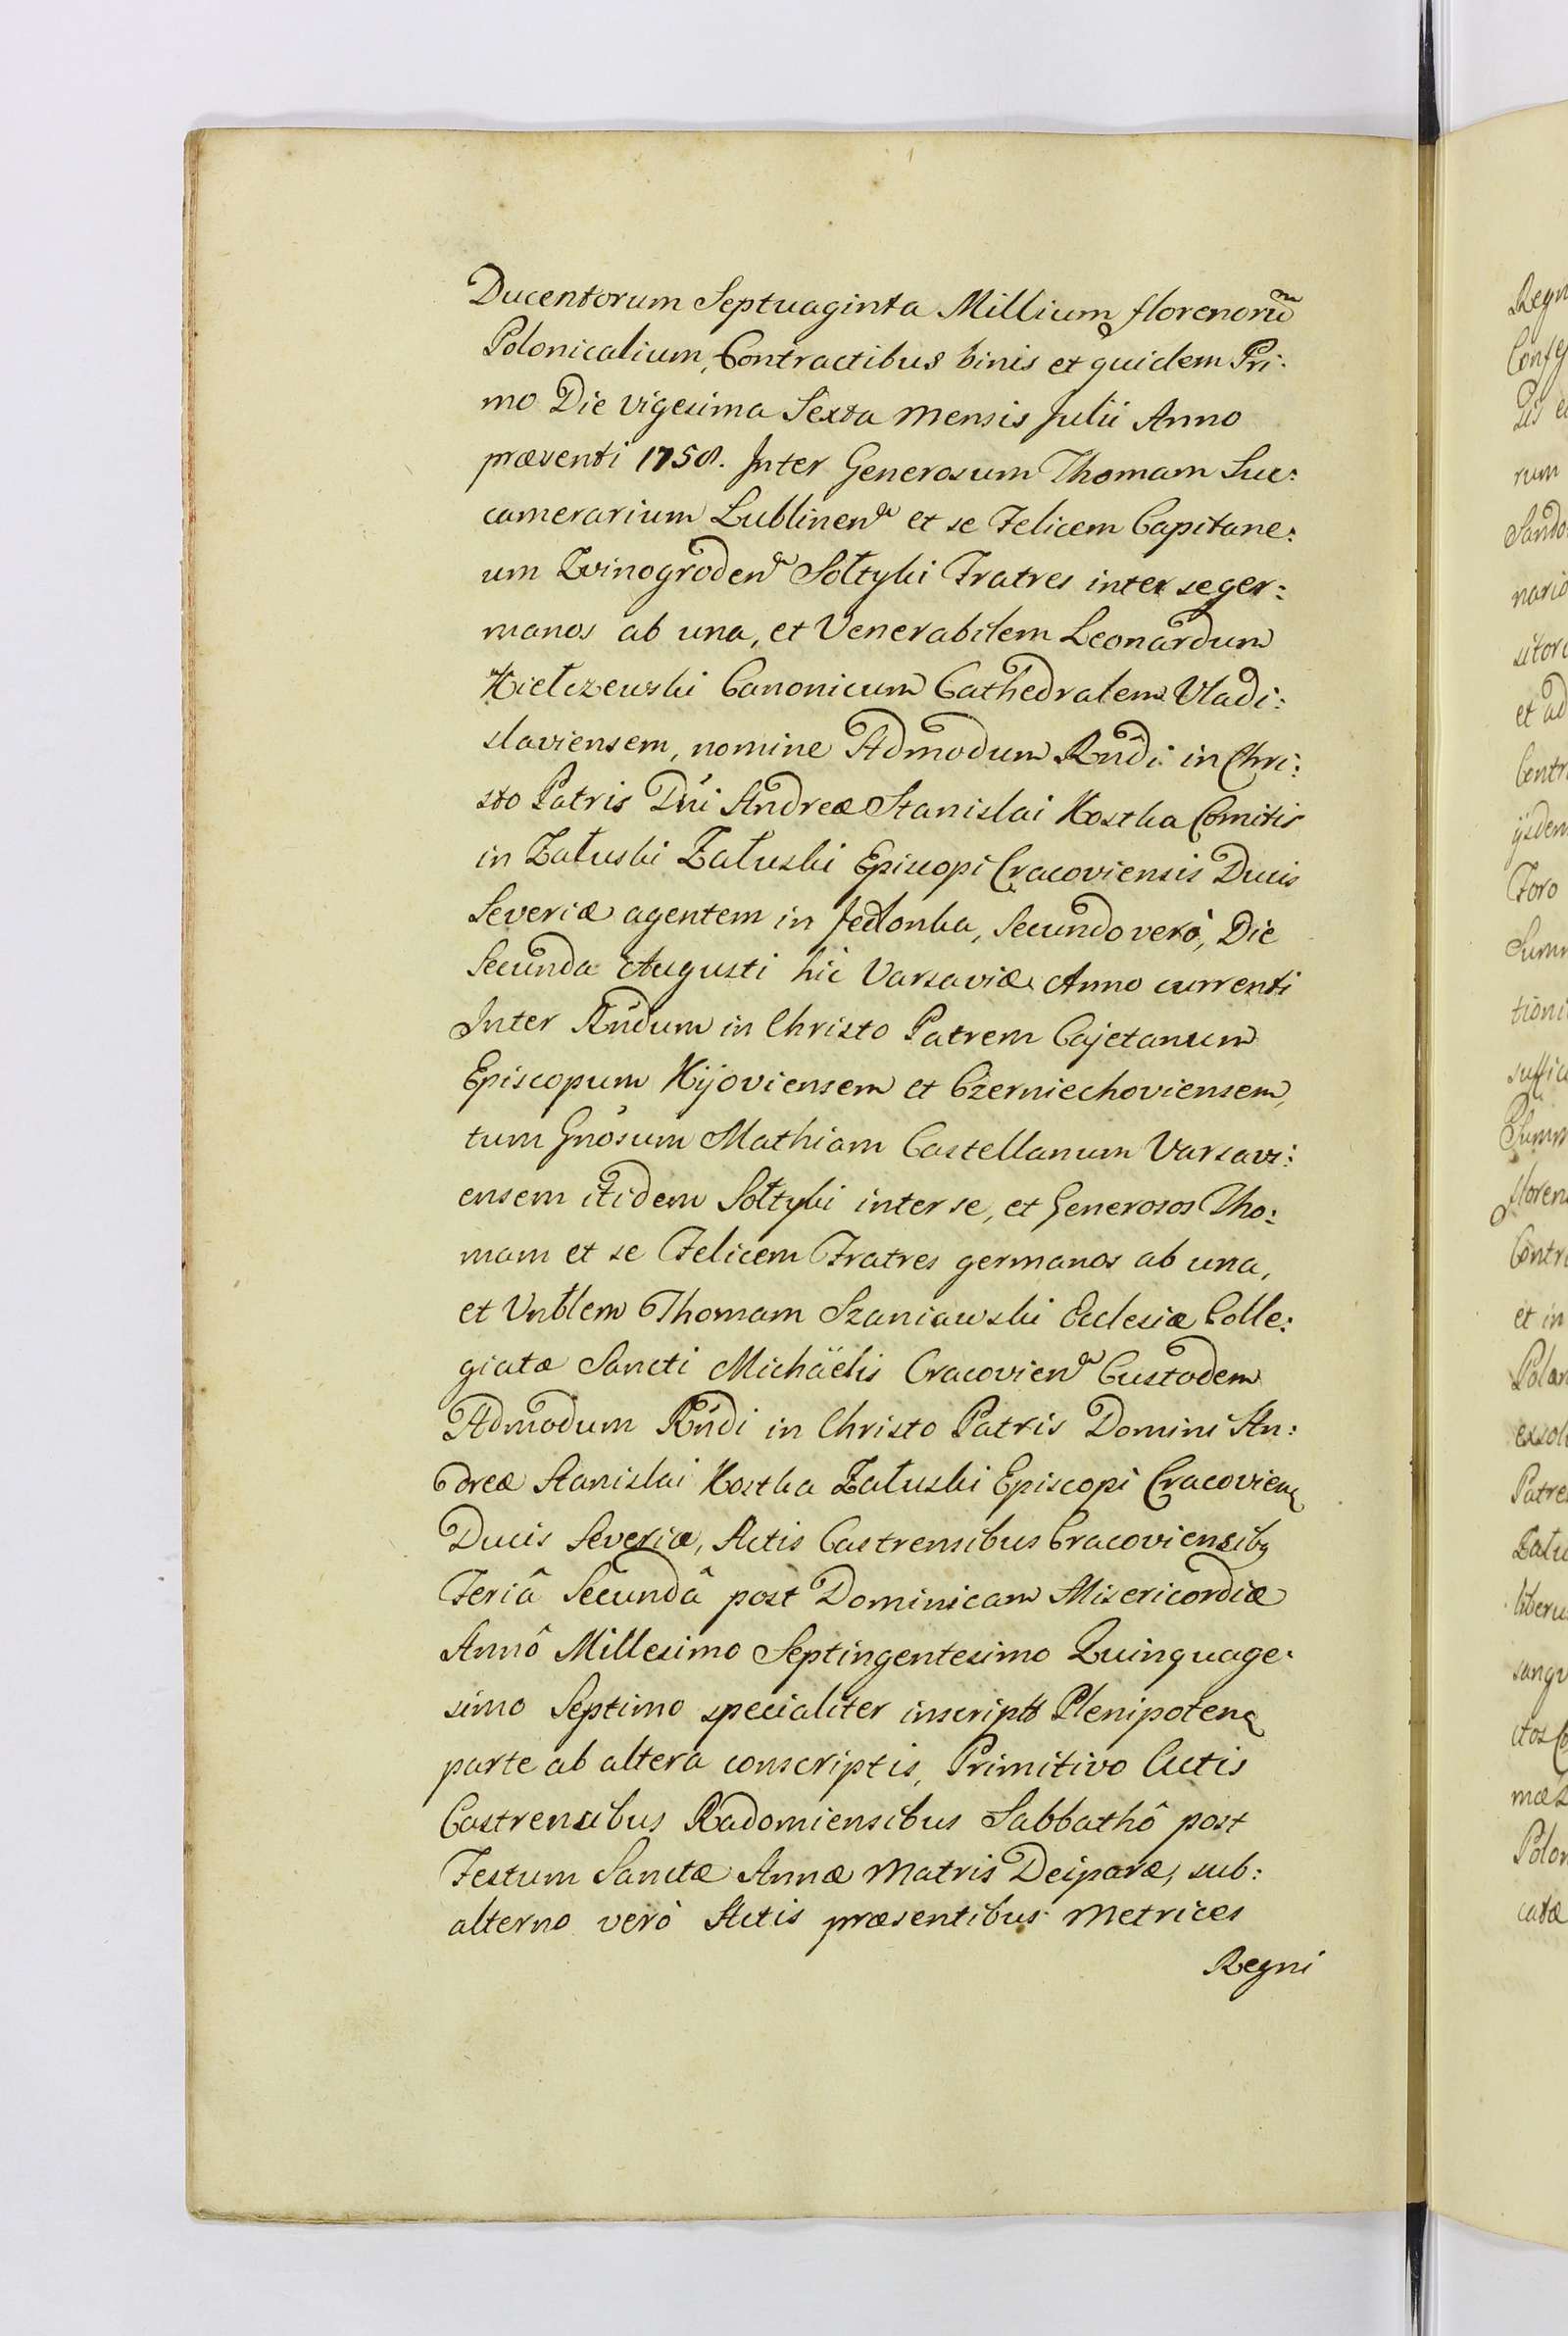 Ducentorum Septuaginta Millium florenorũ
Polonicalium, Contractibus binis et quidem Pri:
mo Die vigesima Sexta mensis Julii Anno
præsenti 1758. Inter Generosum Thomam Suc:
camerarium Lublinen et se Felicem Capitane:
um Zvinogroden Sołtyki Fratres inter se ger:
manos ab una, et Venerabilem Leonardum
Kiełczewski Canonicum Cathedralem Vladi:
slaviensem, nomine Admodum Rñdi in Chri:
sto Patris Dñi Andreæ Stanislai Kostka Comitis
in Załuski Załuski Episcopi Cracoviensis Ducis
Severiæ agentem in Jedlonka, Secundo verò, Die
Secunda Augusti hìc Varsaviæ Anno currenti
Inter Rñdum in Christo Patrem Cajetanum
Episcopum Kijoviensem et Czerniechoviensem,
tum Gnösum Mathiam Castellanum Varsavi:
ensem itidem Sołtyki inter se, et Generosos Tho:
mam et se Felicem Fratres germanos ab una,
et Vnblem Thomam Szaniawski Ecclesiæ Colle:
giatæ Sancti Michäelis Cracovien Custodem
Admodum Rñdi in Christo Patris Domini An:
dreæ Stanislai Kostka Załuski Episcopi Cracovien
Ducis Severiæ, Actis Castrensibus Cracoviensibq
Feriâ Secundâ post Dominicam Misericordiæ
Annô Millesimo Septingentesimo Quinquage:
simo Septimo specialiter inscriptt Plenipoten
parte ab altera conscriptis, Primitivo Actis
Castrensibus Radomiensibus Sabbathô post
Festum Sanctæ Annæ Matris Deiparæ, sub:
alterno verò Actis præsentibus Metrices
Regni